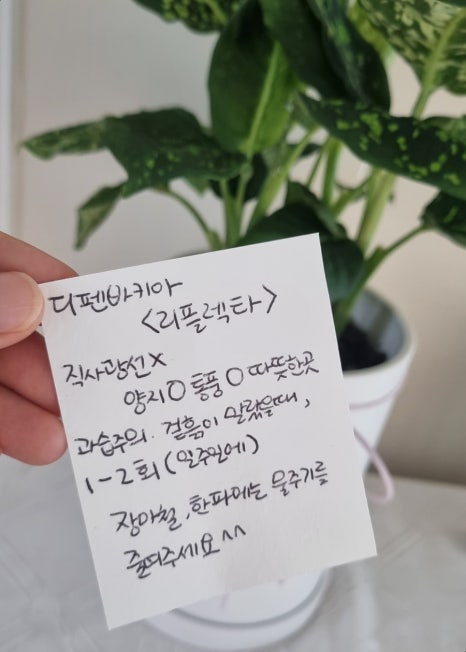 디펜바키아
<리플렉타>
직사광선X
양지O 통풍O 따뜻한곳
과습주의. 겉흙이 말랐을때,
1-2회(일주일에)
장마철, 한파에는 물주기를
줄여주세요^^